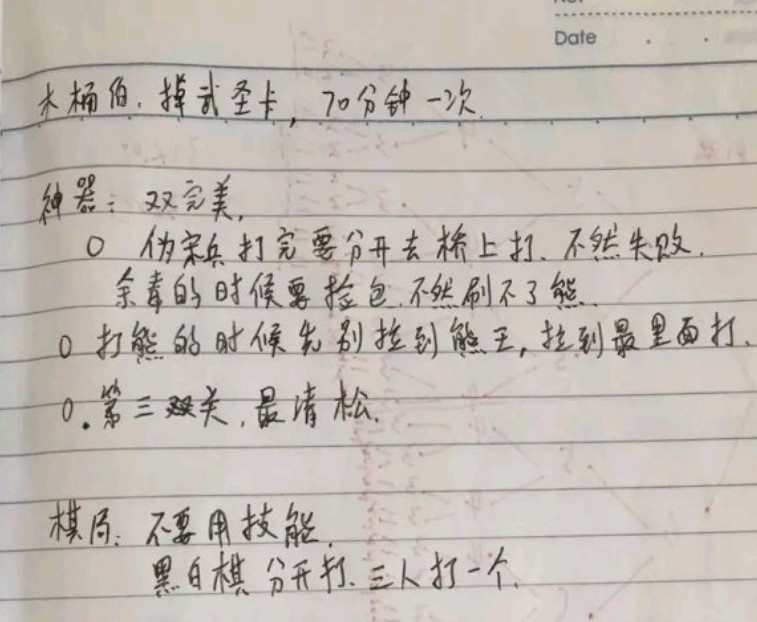 Date
木桶伯．掉武圣卡，70分钟一次．
神器：双完美．
O 伪宋兵打完要分开去桥上打．不然失败．
余毒的时候要捡包．不然刷不了熊．
O 打熊的时候先别拉到熊王，拉到最里面打．
O. 第三关．最清松．
棋局：不要用技能．
黑白棋分开打．三人打一个．